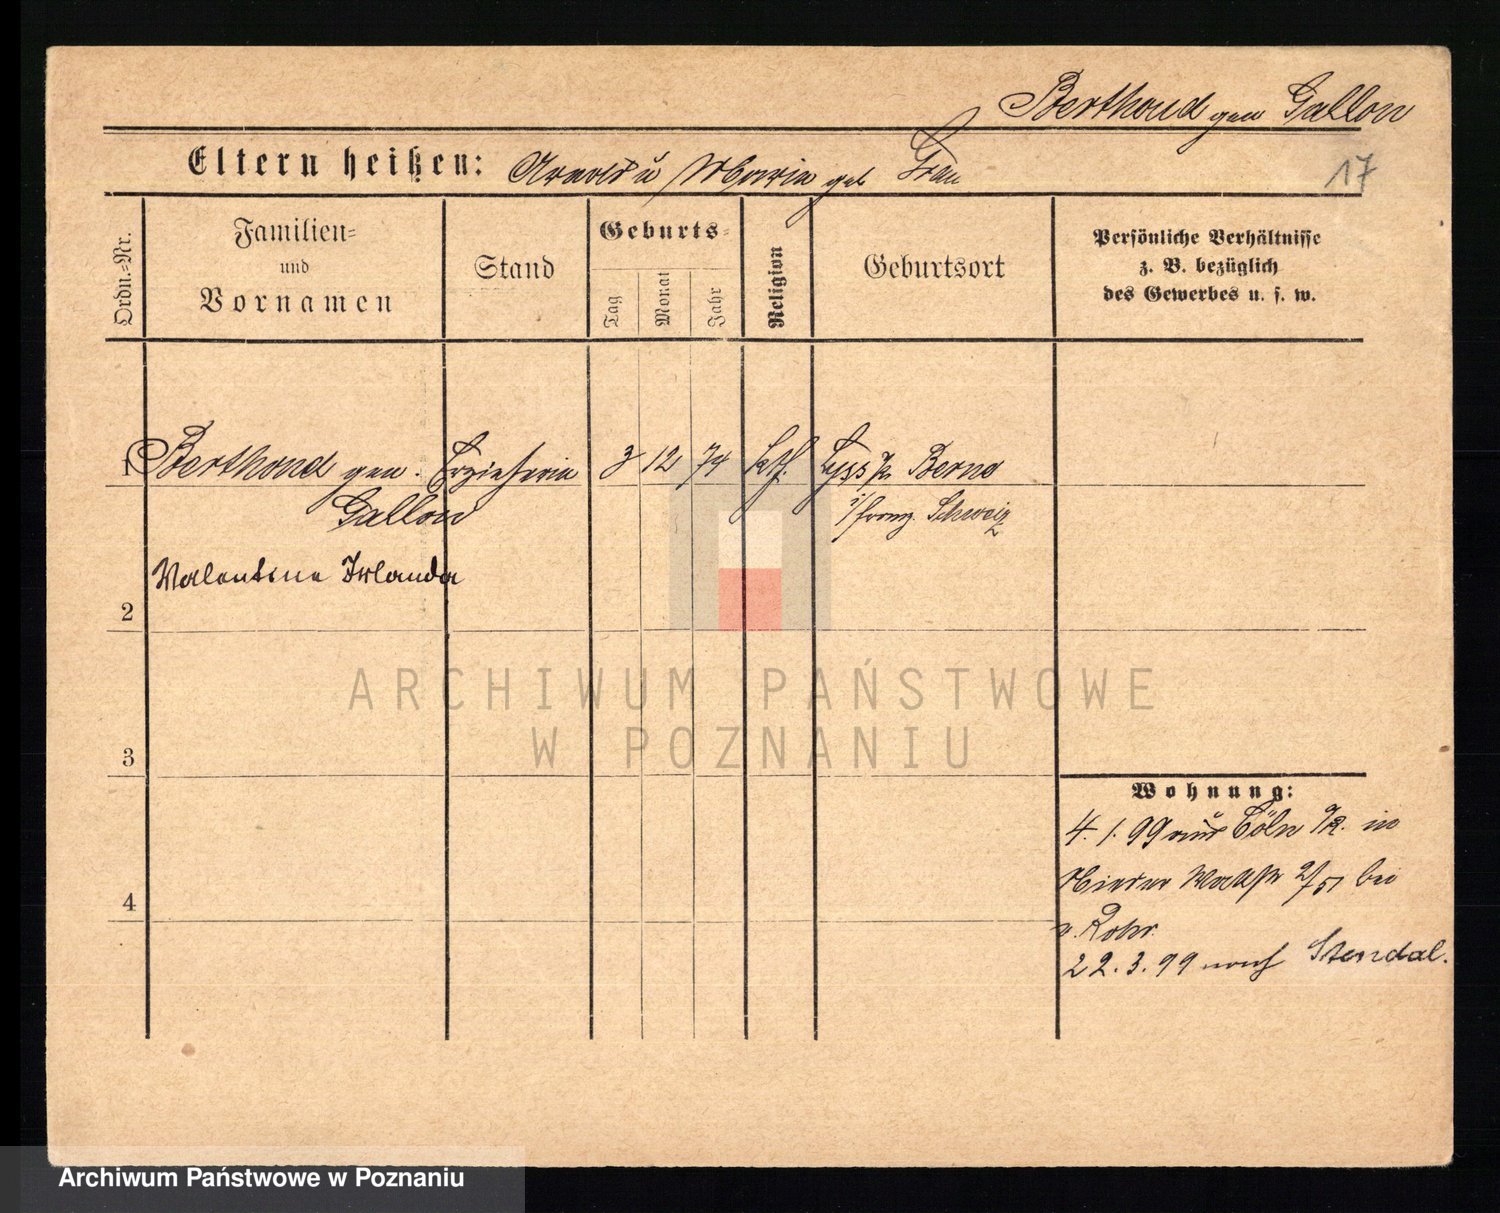 Berthoud gen Gallon
Eltern heißen: Arnold u Maria geb Frau
17
Ordn.-Nr.
Familien-
und
Vornamen
Stand
Geburts-
Tag
Monat
Jahr
Religion
Geburtsort
Persönliche Verhältnisse
z. B. bezüglich
des Gewerbes u. s. w.
1 Berthoud gen. Erzieherin 3 12 74 kth. Lyss Kr Berno
Gallon i/franz. Schweiz
Valentine Irlanda
2
3
4
Wohnung:
4. 1. 99 aus Cöln a/R. in
Wallstr 2/51 bei
v. Rohr.
22. 3. 99 nach Stendal.
ARCHIWUM PAŃSTWOWE
W POZNANIU
Archiwum Państwowe w Poznaniu